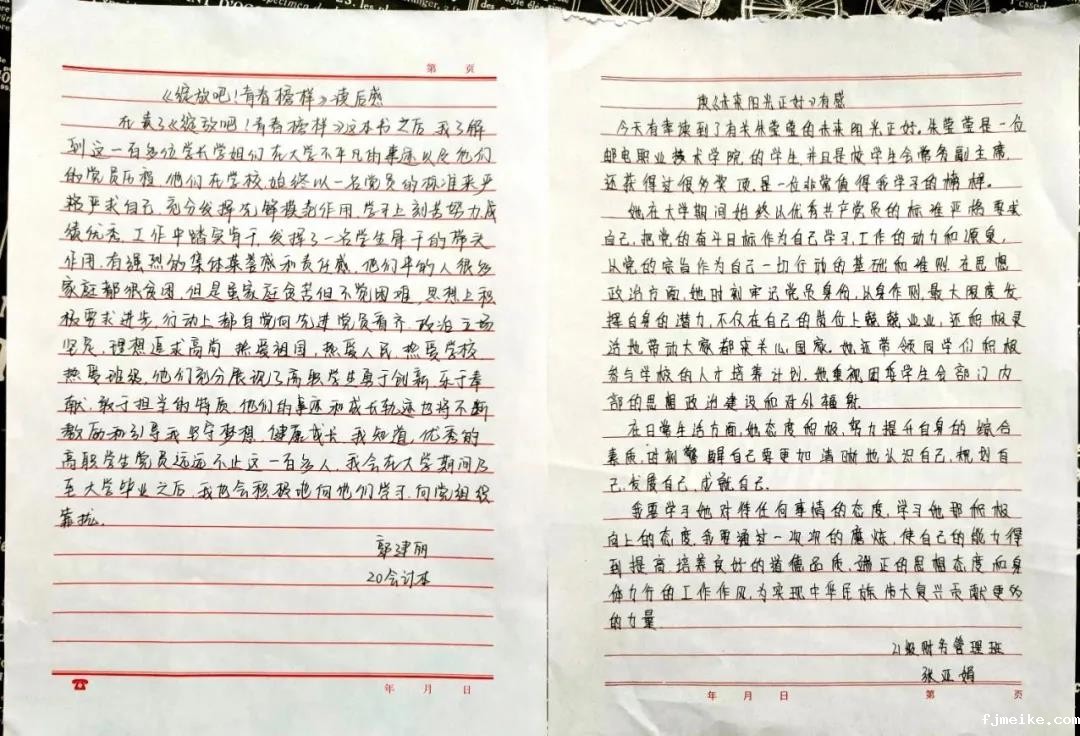 第 页
《绽放吧！青春榜样》读后感
在读了《绽放吧！青春榜样》这本书之后，我了解
到这一百多位学长学姐们在大学不平凡的事迹以及他们
的党员历程，他们在学校始终以一名党员的标准来严
格严求自己，充分发挥先锋模范作用，学习上刻苦努力成
绩优秀，工作中踏实肯干，发挥了一名学生骨干的带头
作用，有强烈的集体荣誉感和责任感。他们中的人很多
家庭都很贫困，但是虽家庭贫苦但不觉困难，思想上积
极要求进步，行动上都自觉向先进党员看齐，政治立场
坚定，理想追求高尚，热爱祖国，热爱人民，热爱学校，
热爱班级，他们充分展现了高职学生勇于创新，乐于奉
献，敢于担当的特质，他们的事迹和成长轨迹也将不断
激励和引导我坚守梦想，健康成长。我知道，优秀的
高职学生党员远远不止这一百多人，我会在大学期间乃
至大学毕业之后，我也会积极地向他们学习，向党组织
靠拢。
郭建丽
20会计本
年 月 日
读《未来阳光正好》有感
今天有幸读到了有关朱莹莹的未来阳光正好。朱莹莹是一位
邮电职业技术学院的学生并且是校学生会常务副主席，
还获得过很多奖项，是一位非常值得我学习的榜样。
她在大学期间始终以优秀共产党员的标准严格要求
自己，把党的奋斗目标作为自己学习、工作的动力和源泉，
以党的宗旨作为自己一切行动的基础和准则。在思想
政治方面，她时刻牢记党员身份，以身作则，最大限度发
挥自身的潜力，不仅在自己的岗位上兢兢业业，还积极录
活地带动大家都来关心国家。她还带领同学们积极
参与学校的人才培养计划。她重视团委学生会部门内
部的思想政治建设和对外辐射。
在日常生活方面，她态度积极，努力提升自身的综合
素质，时刻警醒自己要更加清晰地认识自己，规划自
己，发展自己，成就自己。
我要学习她对待任何事情的态度，学习她那积极
向上的态度，我要通过一次次的磨炼，使自己的能力得
到提高，培养良好的道德品质，端正的思想态度和身
体力行的工作作风，为实现中华民族伟大复兴贡献更多
的力量
21级财务管理班
张亚娟
年 月 日 第 页
fjmeike.com